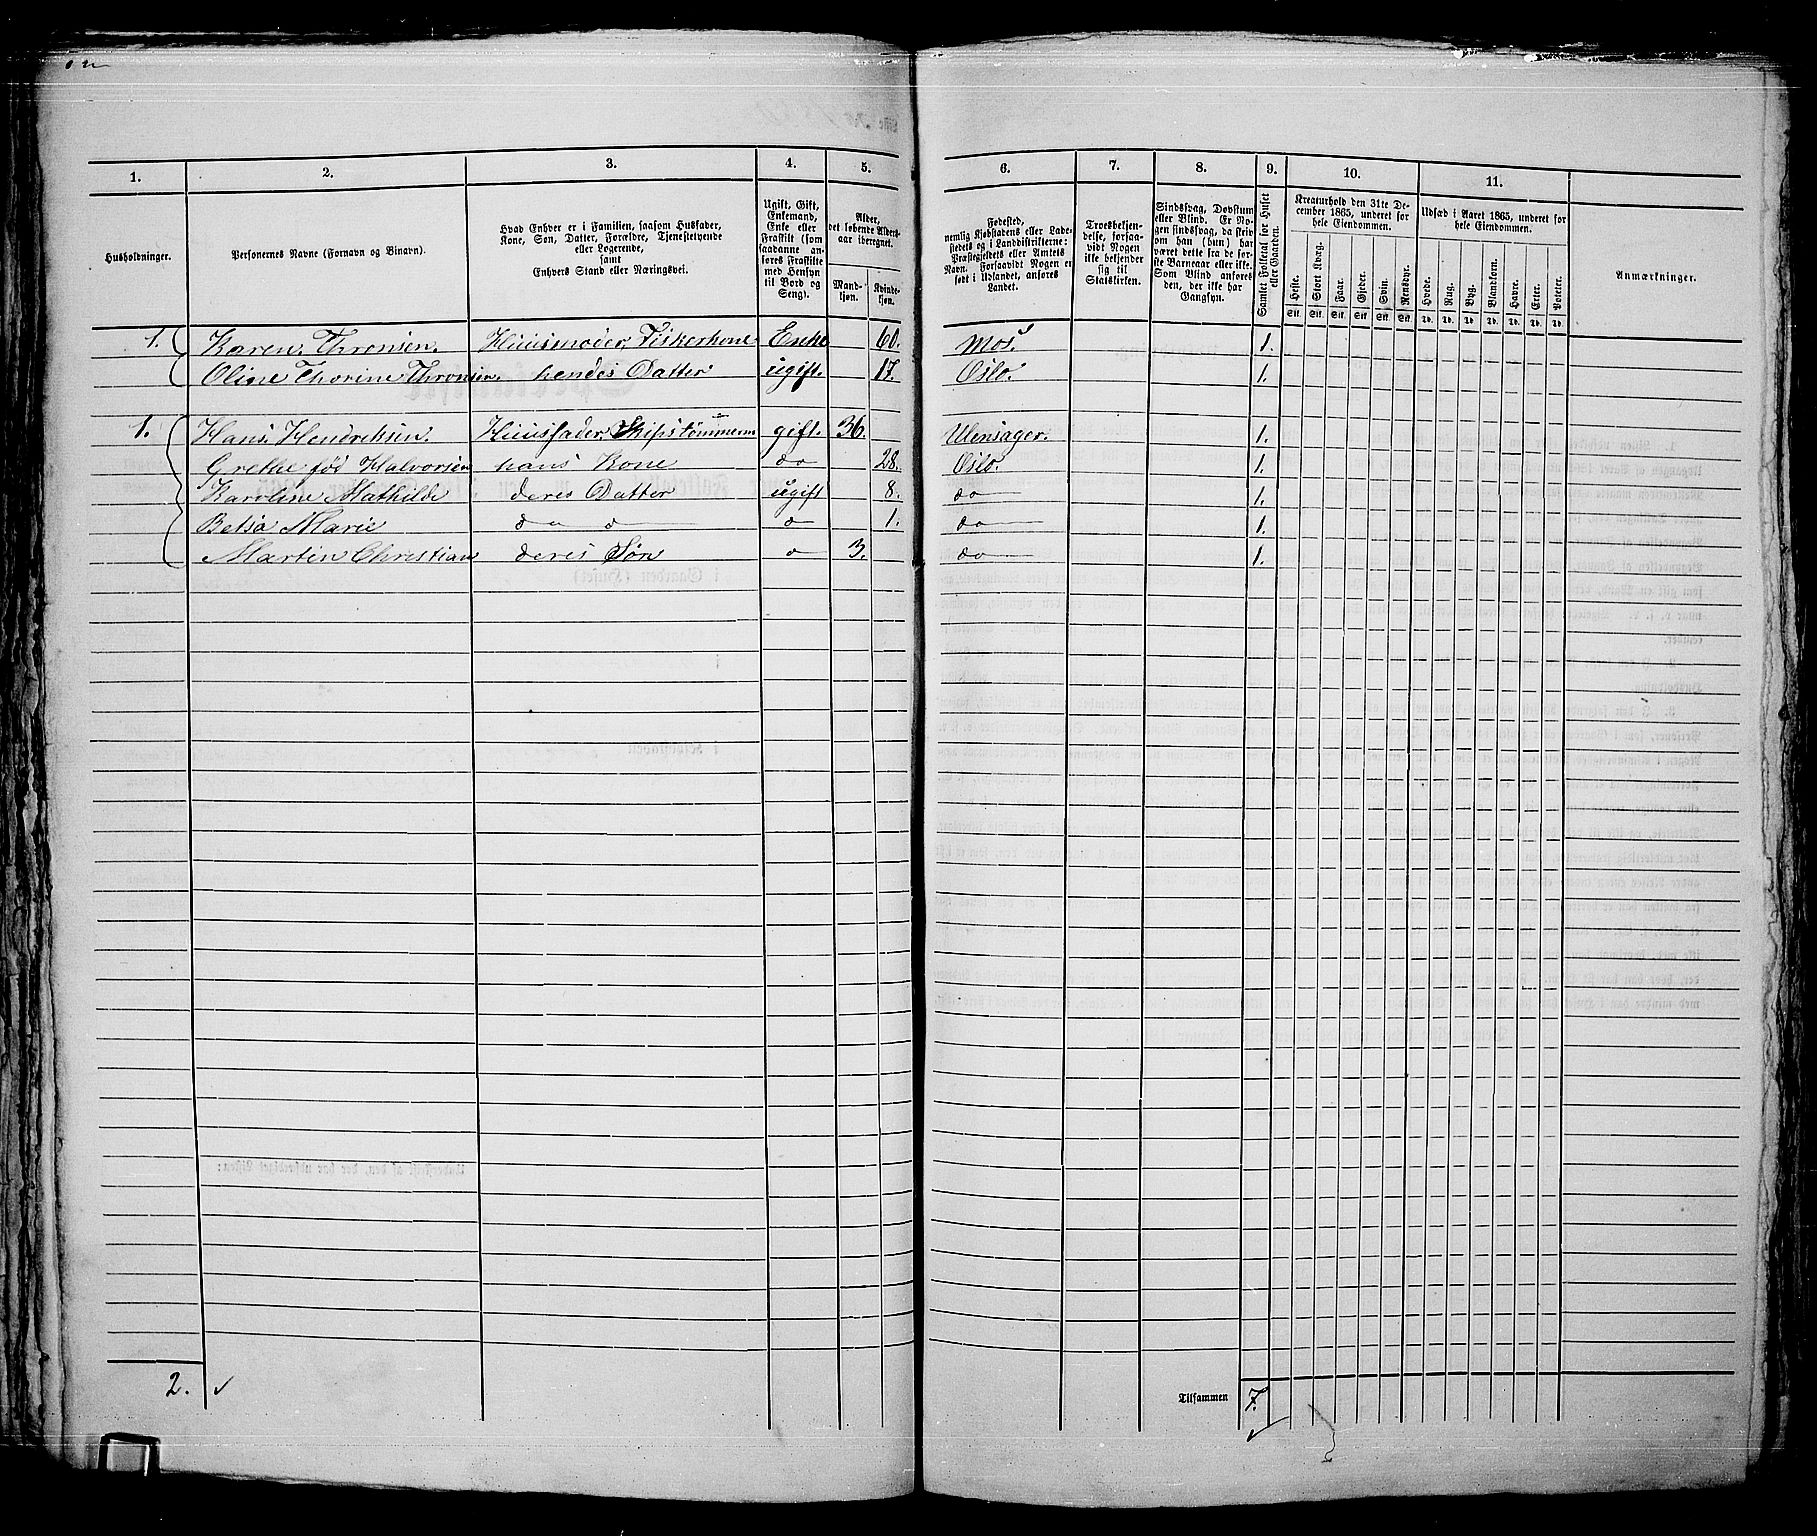 1. 2. 3. 4. 5. 6. 7. 8. 9. 10. 11.
Husholdninger.
Personernes Navne (Fornavn og Binavn).
Hvad Enhver er i Familien, saasom Husfader,
Kone, Søn, Datter, Forældre, Tjenestetyende
eller Logerende,
samt
Enhvers Stand eller Næringsvei.
Ugift, Gift,
Enkemand,
Enke eller
Fraskilt (som
saadanne an-
føres Fraskilte
med Hensyn
til Bord og
Seng).
Alder,
det løbende Alders-
aar iberegnet.
Mand-
kjøn.
Kvinde-
kjøn.
Fødested,
nemlig Kjøbstadens eller Lade-
stedets og i Landdistrikterne:
Præstegjeldets eller Amtets
Navn. Forsaavidt Nogen er
født i Udlandet, anføres
Landet.
Troesbekjen-
delse, forsaa-
vidt Nogen
ikke bekjender
sig til
Statskirken.
Sindssvag, Døvstum
eller Blind. Er No-
gen sindssvag, da skriv
om han (hun) har
været dette fra de før-
ste Barneaar eller ikke.
Som Blind anføres
den, der ikke har
Gangsyn.
Samlet Folketal for Huset
eller Gaarden.
Kreaturhold den 31te De-
cember 1865, underet for
hele Eiendommen.
Heste. Stort Kvæg. Faar. Gjeder. Svin. Rensdyr.
Stk. Stk. Stk. Stk. Stk. Stk.
Udsæd i Aaret 1865, underet for
hele Eiendommen.
Hvede. Rug. Byg. Blandkorn. Havre. Erter. Poteter.
Td. Td. Td. Td. Td. Td. Td.
Anmærkninger.
1. Karen Thronsen. Huusmoder Fiskerkone Enke 60. Mos. 1.
Oline Thorine Thronsen. hendes Datter ugift. 17. Oslo. 1.
1. Hans Hendriksen. Huusfader Skipstømmerm gift. 36. Ulensager. 1.
Grethe fød Halvorsen hans Kone do 28. Oslo. 1.
Karoline Mathilde deres Datter ugift 8. do 1.
Betsa Marie d d o 1. do 1.
Martin Christian deres Søn o 3. do 1.
2. Tilsammen 7.